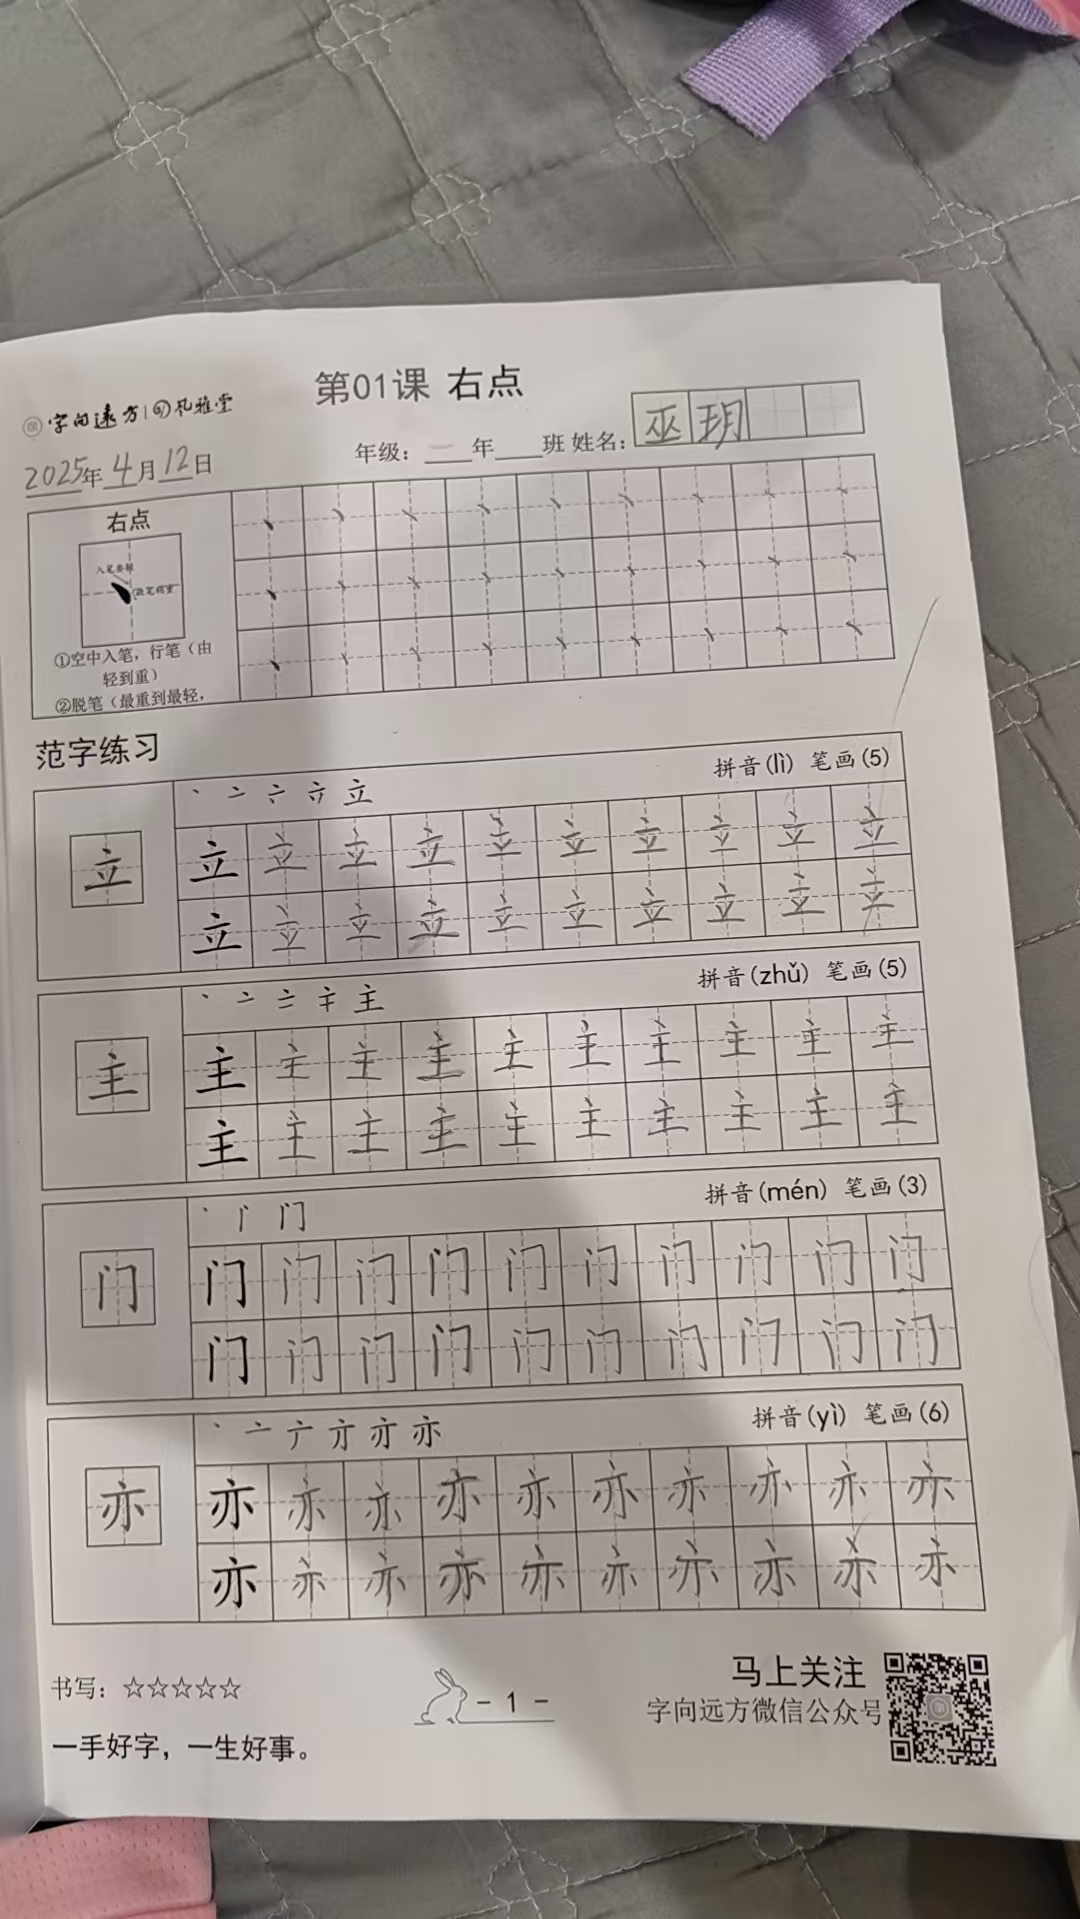 第01课 右点
字向遠方 | 风雅堂
2025年4月12日
年级：一年 班 姓名：巫玥
右点
入笔要轻
收笔稍重
①空中入笔，行笔（由
轻到重）
②脱笔（最重到最轻，
范字练习
丶 亠 立
拼音(lì) 笔画(5)
立
立 立 立 立 立 立 立 立 立 立
立 立 立 立 立 立 立 立 立 立
丶 亠 主
拼音(zhǔ) 笔画(5)
主
主 主 主 主 主 主 主 主 主 主
主 主 主 主 主 主 主 主 主 主
丶 门
拼音(mén) 笔画(3)
门
门 门 门 门 门 门 门 门 门 门
门 门 门 门 门 门 门 门 门 门
丶 亠 亦
拼音(yì) 笔画(6)
亦
亦 亦 亦 亦 亦 亦 亦 亦 亦 亦
亦 亦 亦 亦 亦 亦 亦 亦 亦 亦
书写：☆☆☆☆☆
- 1 -
马上关注
字向远方微信公众号
一手好字，一生好事。